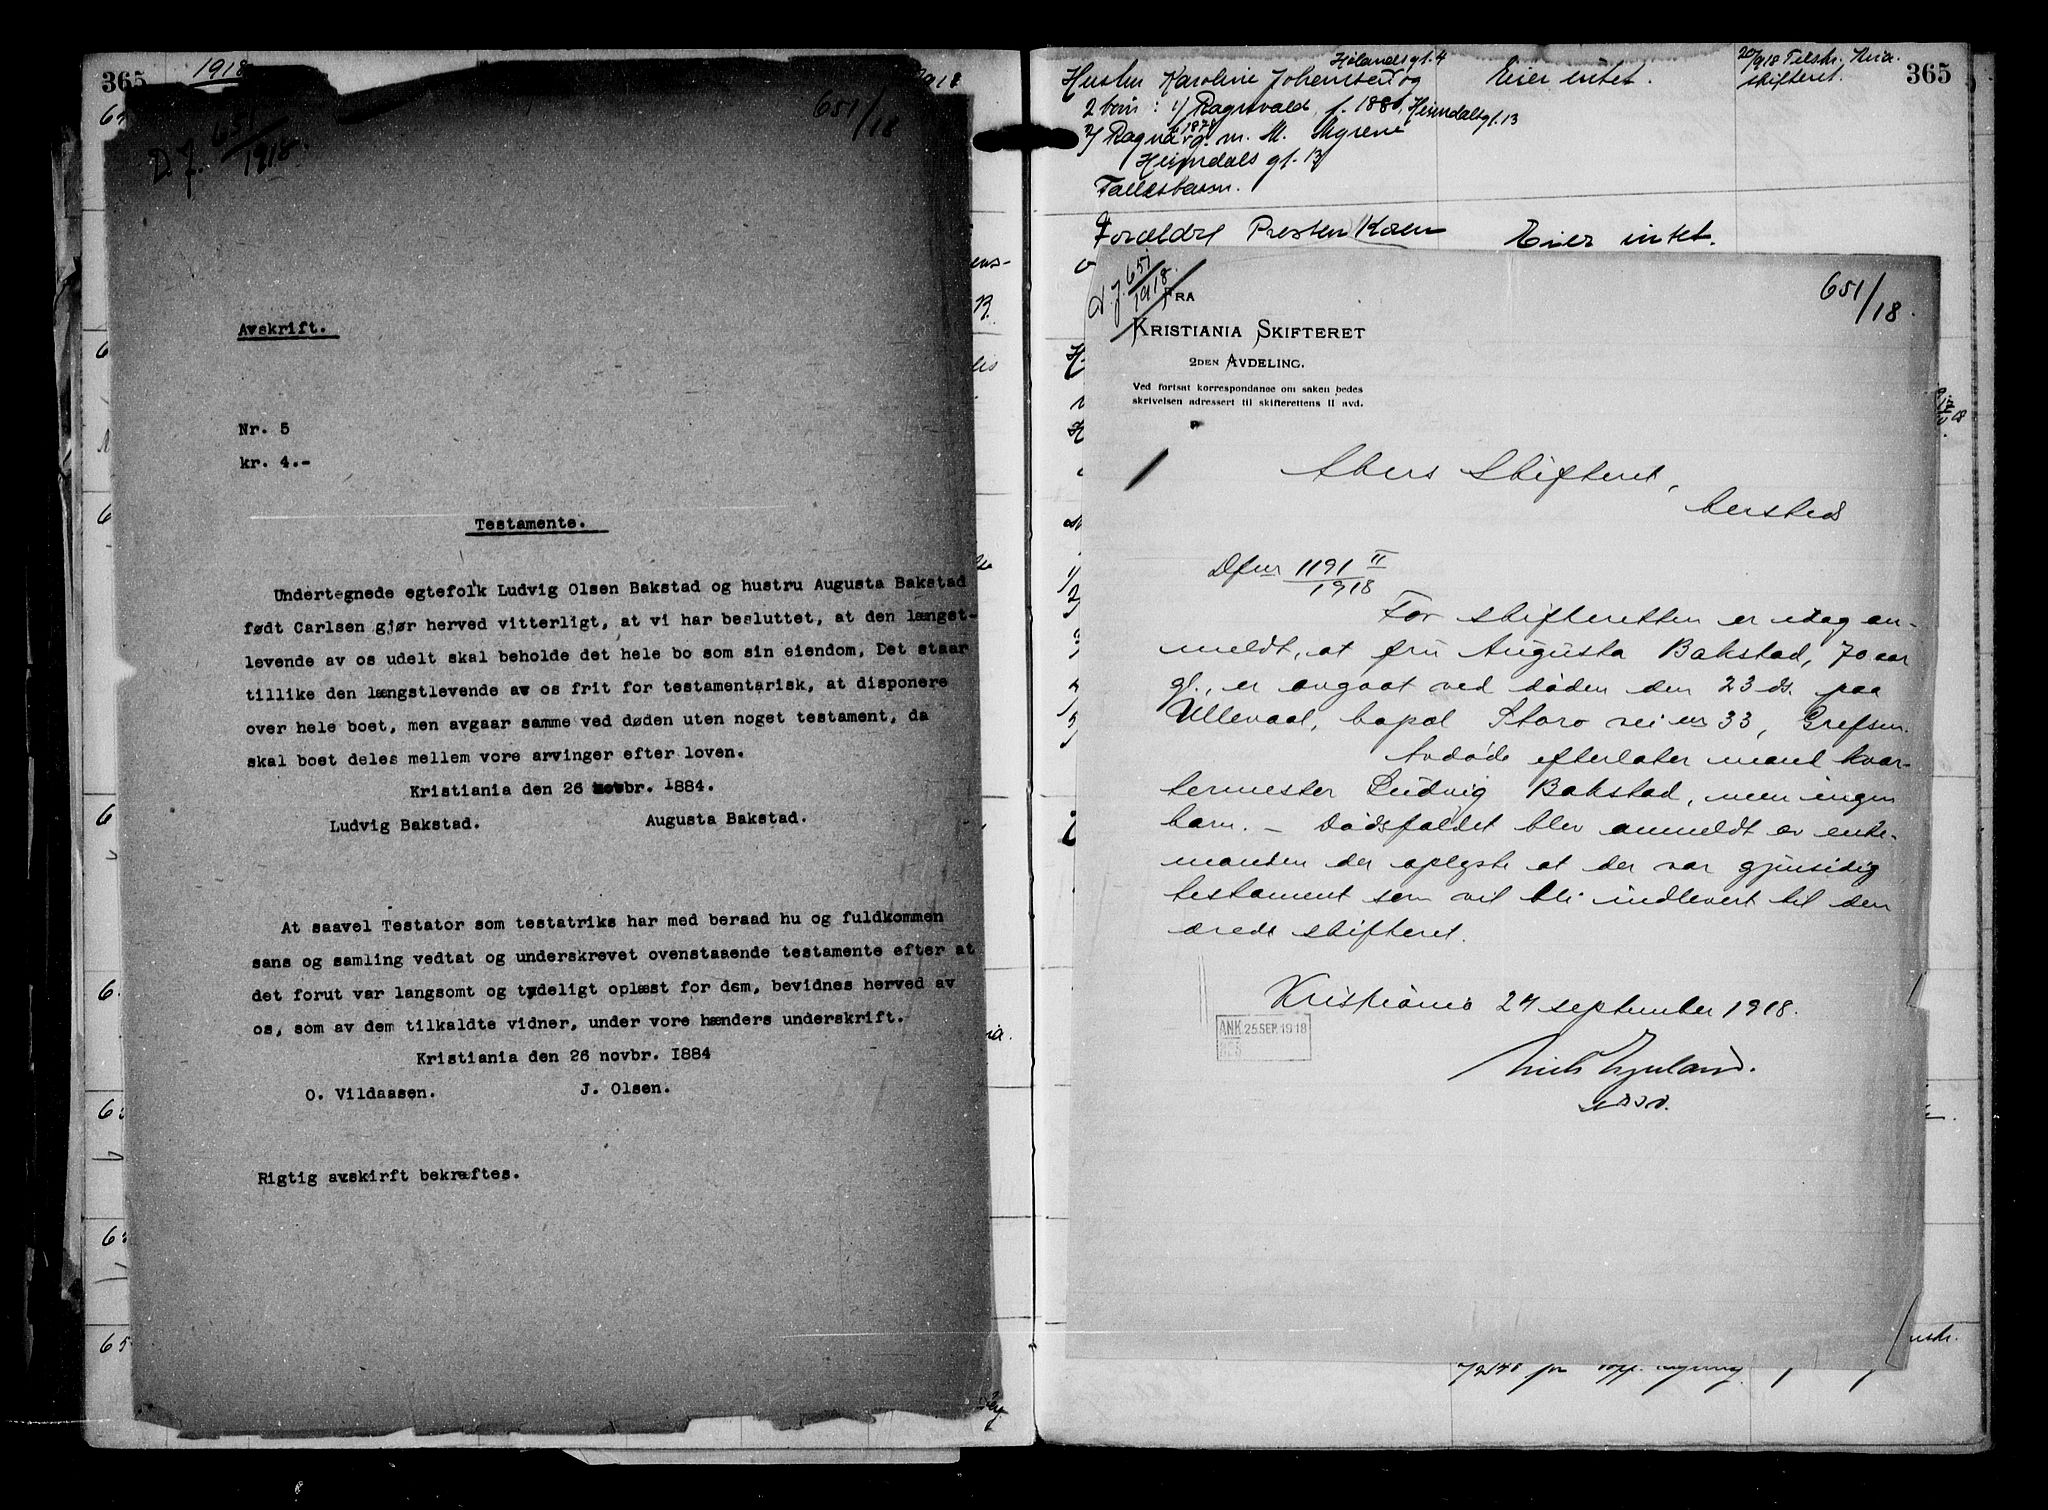 365
1918
1918
651/18
D.J. 651/1918.
Avskrift.
Nr. 5
kr. 4.-
Testamente.
Undertegnede egtefolk Ludvig Olsen Bakstad og hustru Augusta Bakstad
født Carlsen gjør herved vitterligt, at vi har besluttet, at den længst-
levende av os udelt skal beholde det hele bo som sin eiendom, Det staar
tillike den længstlevende av os frit for testamentarisk, at disponere
over hele boet, men avgaar samme ved døden uten noget testament, da
skal boet deles mellem vore arvinger efter loven.
Kristiania den 26 novbr. 1884.
Ludvig Bakstad. Augusta Bakstad.
At saavel Testator som testatriks har med beraad hu og fuldkommen
sans og samling vedtat og underskrevet ovenstaaende testamente efter at
det forut var langsomt og tydeligt oplæst for dem, bevidnes herved av
os, som av dem tilkaldte vidner, under vore hænders underskrift.
Kristiania den 26 novbr. 1884
O. Vildaasen. J. Olsen.
Rigtig avskirft bekræftes.
Hølandsgt. 4
Hustru Karoline Johansen og Eier intet. 20/9 18 Tilskr. Kria. 365
skifteret.
2 børn: 1) Ragnvald, f. 1880, Heimdalsgt. 13
2) Ragna f. 1878 g. m. M. Myrene
Heimdals gt. 13
Fællesbarn.
Forældre Presten Koren Eier intet.
651/18
D.J. 651/1918.
FRA
KRISTIANIA SKIFTERET
2DEN AVDELING.
Ved fortsat korrespondanse om saken bedes
skrivelsen adressert til skifterettens II avd.
Akers Skifteret,
hersteds
Dfnr 1191 II/1918
For skifteretten er idag an-
meldt, at fru Augusta Bakstad, 70 aar
gl., er avgaat ved døden den 23 ds. paa
Ullevaal, bopæl Storo veien 33, Grefsen.
Avdøde efterlater mand kvar-
termester Ludvig Bakstad, men ingen
barn. – Dødsfaldet blev anmeldt av enke-
manden der oplyste at der var gjensidig
testament som vil bli indlevert til den
ærede skifteret.
Kristiania 24 september 1918.
ANK 25 SEP. 1918